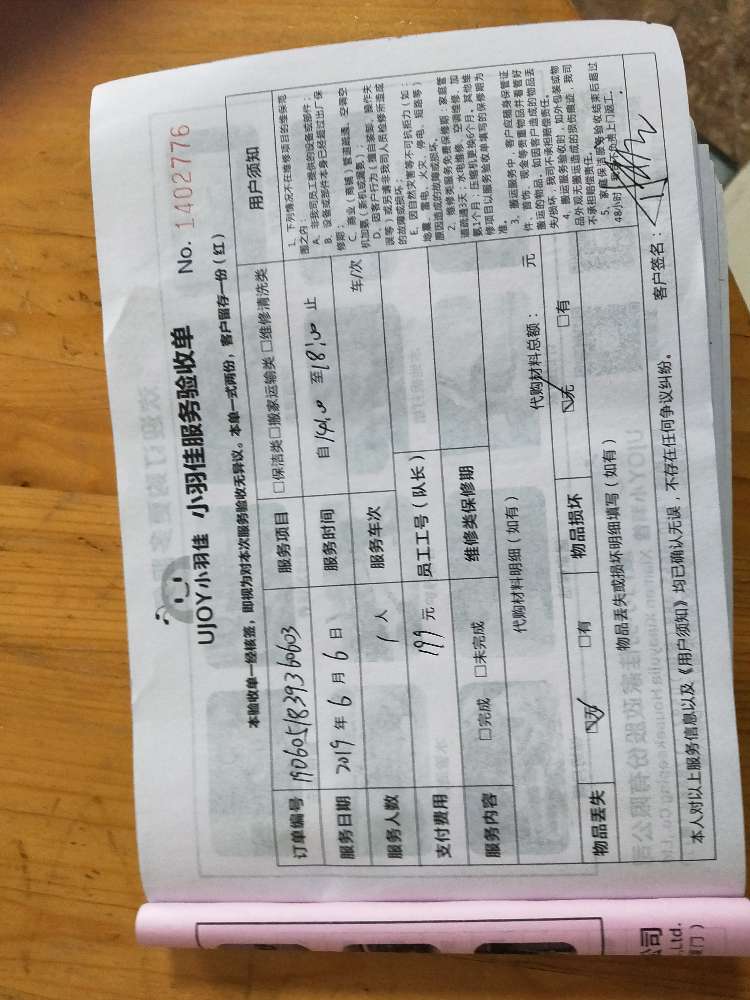 UJOY小羽佳 小羽佳服务验收单
No. 1402776
本验收单一经核签，即视为对本次服务验收无异议。本单一式两份，客户留存一份（红）
订单编号 190605183936060​3
服务项目 □保洁类□搬家运输类 □维修清洗类
服务日期 2019 年 6 月 6 日
服务时间 自 14:00 至 18:00 止
服务人数 1 人
服务车次 车/次
支付费用 199 元
员工工号（队长）
服务内容 □完成 □未完成
维修类保修期
代购材料明细（如有）
代购材料总额： 元
物品丢失 ☑无 □有
物品损坏 ☑无 □有
物品丢失或损坏明细填写（如有）
本人对以上服务信息以及《用户须知》均已确认无误，不存在任何争议纠纷。 客户签名：
用户须知
1、下列情况不在维修项目的维保范
围之内：
A、非我司员工提供的设备或部件；
B、设备或部件本身已经超过出厂保
修期；
C、商业（商铺）管道疏通、空调空
调加氨（新机或漏氨）；
D、因客户行为（擅自装卸、操作失
误等）或另请非我司人员检修所造成
的故障或损坏；
E、因自然灾害等不可抗拒力（如：
地震、雷电、火灾、停电、短路等）
原因造成的故障或损坏。
2、维修类服务免费保修期：家庭管
道疏通3天，水电维修、空调维修、加
氨1个月，压缩机更换6个月，其他维
修项目以服务验收单填写的保修期为
准。
3、搬运服务中，客户应随身保管证
件、首饰、现金等贵重物品并看管好
搬运的物品，如因客户造成的物品丢
失/损坏，我司不承担赔偿责任。
4、搬运服务验收时，如外包装或物
品外观无搬运造成的损伤痕迹，我司
不承担赔偿责任。
5、家庭保洁服务验收结束后超过
48小时，我司不负责上门返工。
公司
Ltd.